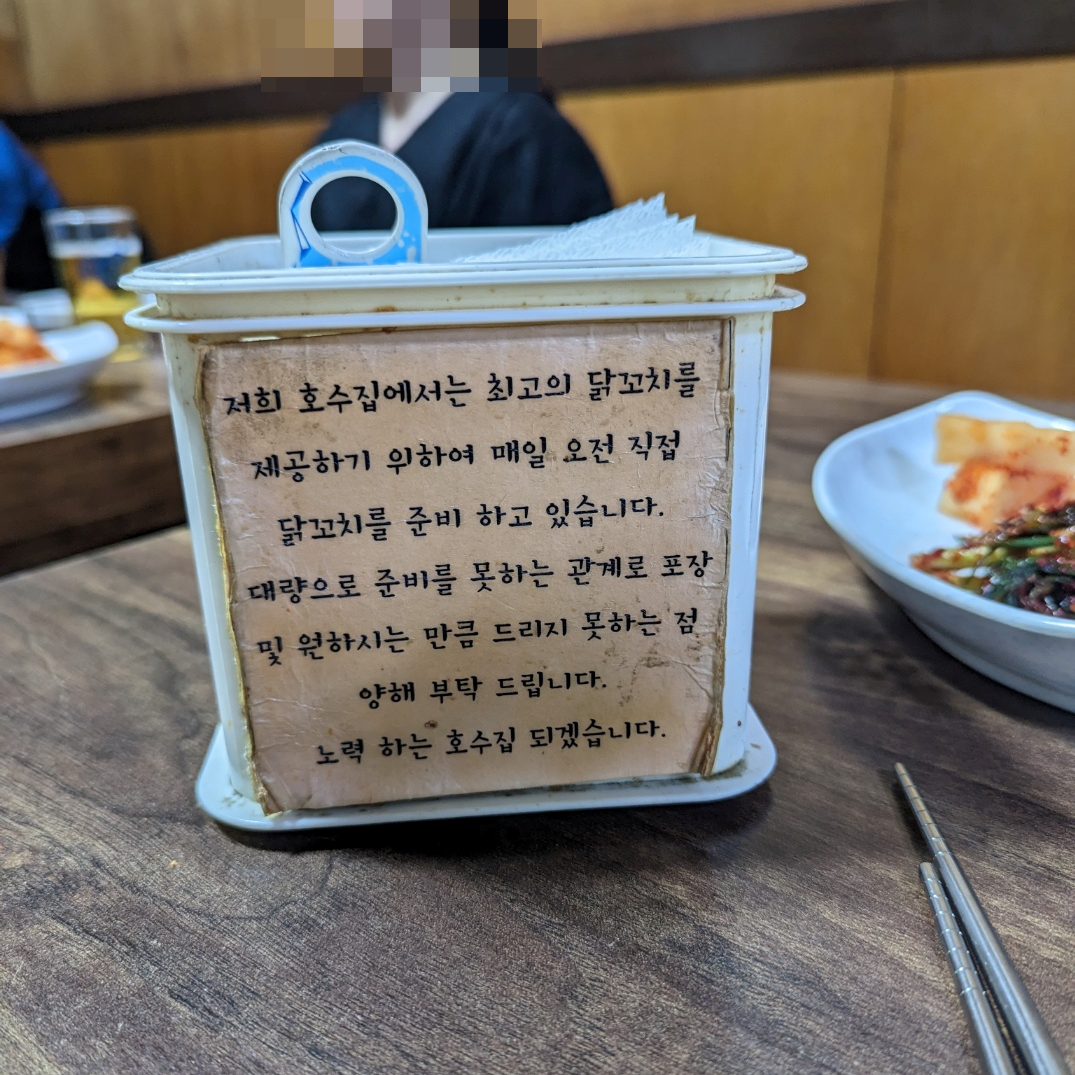 저희 호수집에서는 최고의 닭꼬치를
제공하기 위하여 매일 오전 직접
닭꼬치를 준비 하고 있습니다.
대량으로 준비를 못하는 관계로 포장
및 원하시는 만큼 드리지 못하는 점
양해 부탁 드립니다.
노력 하는 호수집 되겠습니다.